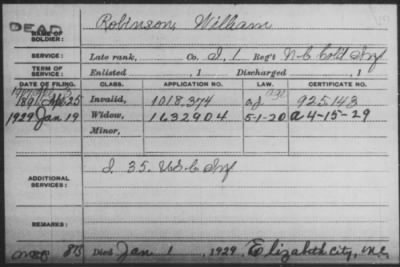 DEAD
NAME OF SOLDIER: Robinson, William
SERVICE: Late rank, Co. I, 1 Reg't N-C Col'd Inf
TERM OF SERVICE: Enlisted , 1 Discharged , 1
DATE OF FILING. CLASS. APPLICATION NO. LAW. CERTIFICATE NO.
189 25 Invalid, 1018,374 925143
1929 Jan 19 Widow, 1632904 5-1-20 a 4-15-29
Minor,
ADDITIONAL SERVICES: I 35. U.S.C Inf
REMARKS:
Died Jan 1, 1929, Elizabeth City, N.C.